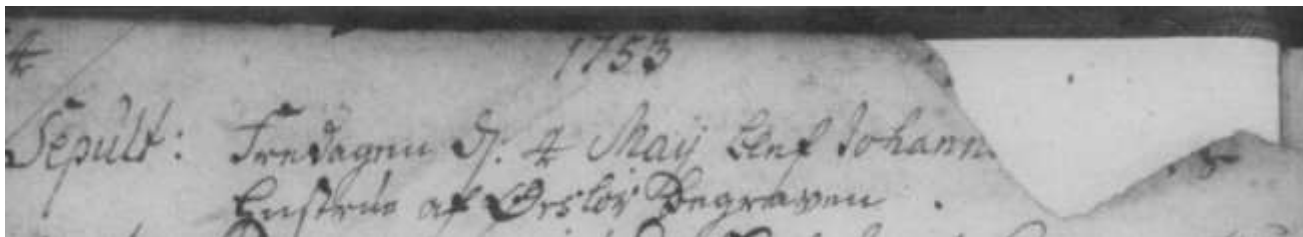 1753
Sepult: Fredagen d. 4 Maij blef Johann
Hustrue af Ørslöv Begraven